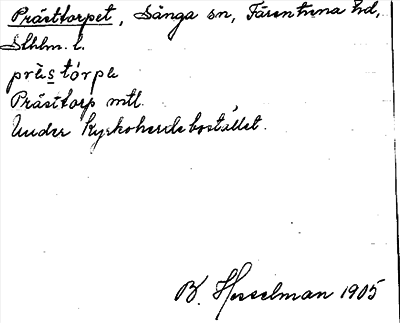 Prästtorpet, Sånga sn, Färentuna hd,
Sthlm. l.
prästórpe
Prästtorp mtl.
Under Kyrkoherdebostället.
B. Hesselman 1905